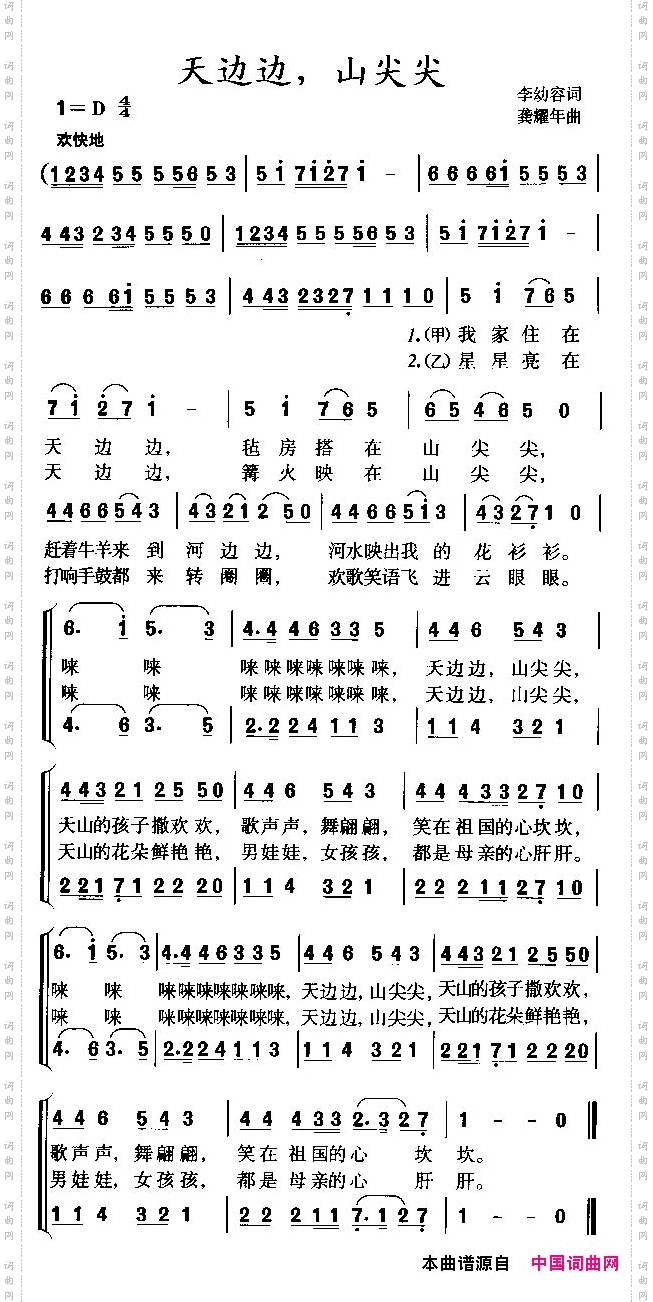 天边边，山尖尖
1=D 4/4
李幼容词
龚耀年曲
欢快地
(1234 55 5565 53 | 51 7127 1 – | 666 61 55 53 |
4 43 234 55 50 | 1234 55 5565 53 | 51 7127 1 – |
66 661 55 53 | 4 43 2327 11 10 | 5 1 76 5
1.(甲)我 家 住 在
2.(乙)星 星 亮 在
71 27 1 – | 5 1 76 5 | 65 46 5 0 |
天 边 边， 毡 房 搭 在 山 尖 尖，
天 边 边， 篝 火 映 在 山 尖 尖，
4466543 | 4321 2 50 | 44665513 | 4327 1 0 |
赶着牛羊来 到 河 边 边， 河水映出我 的 花 衫 衫。
打响手鼓都 来 转 圈 圈， 欢歌笑语飞 进 云 眼 眼。
6. 1 5. 3 | 4.446 33 5 | 44 6 54 3 |
唻 唻 唻唻唻唻唻唻唻， 天边边，山尖尖，
唻 唻 唻唻唻唻唻唻唻， 天边边，山尖尖，
4. 6 3. 5 | 2.224 11 3 | 11 4 32 1 |
4 4321 25 50 | 44 6 54 3 | 44 43327 10 |
天山的孩子撒欢欢， 歌声声，舞翩翩， 笑在祖国的心坎坎，
天山的花朵鲜艳艳， 男娃娃，女孩孩， 都是母亲的心肝肝。
2 2217 12 20 | 11 4 32 1 | 22 21127 10 |
6. 1 5. 3 | 4.446 33 5 | 44 6 54 3 | 4 4321 25 50 |
唻 唻 唻唻唻唻唻唻唻，天边边，山尖尖，天山的孩子撒欢欢，
唻 唻 唻唻唻唻唻唻唻，天边边，山尖尖，天山的花朵鲜艳艳，
4. 6 3. 5 | 2.224 11 3 | 11 4 32 1 | 2 2217 12 20 |
44 6 54 3 | 44 433 2.327 | 1 – – 0 ‖
歌声声，舞翩翩， 笑在祖国的心 坎 坎。
男娃娃，女孩孩， 都是母亲的心 肝 肝。
11 4 32 1 | 22 211 7.127 | 1 – – 0 ‖
本曲谱源自 中国词曲网